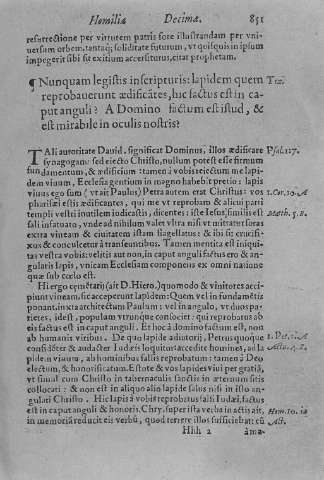 Homiliæ Decimæ. 851
resurrectione per virtutem patris fore illustrandam per vni-
uersum orbem, tantaq; soliditate futurum, vt quisquis in ipsum
impegerit sibi sit exitium accersiturus, citat prophetam.
¶ Nunquam legistis in scripturis: lapidem quem Tex.
reprobauerunt ædificātes, hic factus est in ca-
put anguli? A Domino factum est istud, &
est mirabile in oculis nostris?
TAli autoritate Dauid, significat Dominus, illos ædificare Psal. 117.
synagogam: sed eiecto Christo, nullum potest esse firmum
fundamentum, & ædificium: tamen à vobis reiectum me lapi-
dem viuum, Ecclesia gentium in magno habebit pretio: lapis
viuus ego sum (vt ait Paulus) Petra autem erat Christus: vos 1. Cor. 10. A
pharisæi estis ædificantes, qui me vt reprobam & alicui parti
templi vestri inutilem iudicastis, dicentes: iste Iesus, similis est Math. 5. B.
sali infatuato, vnde ad nihilum valet vltra nisi vt mittatur foras
extra vineam & ciuitatem istam flagellatus: & ibi sit crucifi-
xus & conculcetur à transeuntibus. Tamen mentita est iniqui-
tas vestra vobis: velitis aut non, in caput anguli factus ero & an-
gularis lapis, vnicam Ecclesiam componens ex omni natione
quæ sub cœlo est.
Hi ergo cæmētarij (ait D. Hiero.) quomodo & vinitores acci-
piunt vineam, sic acceperunt lapidem: Quem vel in fundamēto
ponant, iuxta architectum Paulum: vel in angulo, vt duos pa-
rietes, id est, populum vtrunque consociet: qui reprobatus ab
eis factus est in caput anguli. Et hoc à domino factum est, non
ab humanis viribus. De quo lapide adiutorij, Petrus quoque 1. Pet. 2. A
confidēter & audacter Iudæis loquitur: accedite homines, ad la Actu. 4. B.
pidem viuum, ab hominibus falsis reprobatum: tamen à Deo
electum, & honorificatum. Estote & vos lapides viui per gratiā,
vt simul cum Christo in tabernaculis sanctis in æternum sitis
collocati: & non est in aliquo alio lapide salus nisi in isto an-
gulari Christo. Hic lapis à vobis reprobatus falsi Iudæi, factus
est in caput anguli & honoris. Chry. super ista verba in actis ait, Hom. 10. in
in memoriā reducit eis verbū, quod terrere illos sufficiebat: cū Act.
Hhh 2 ama-